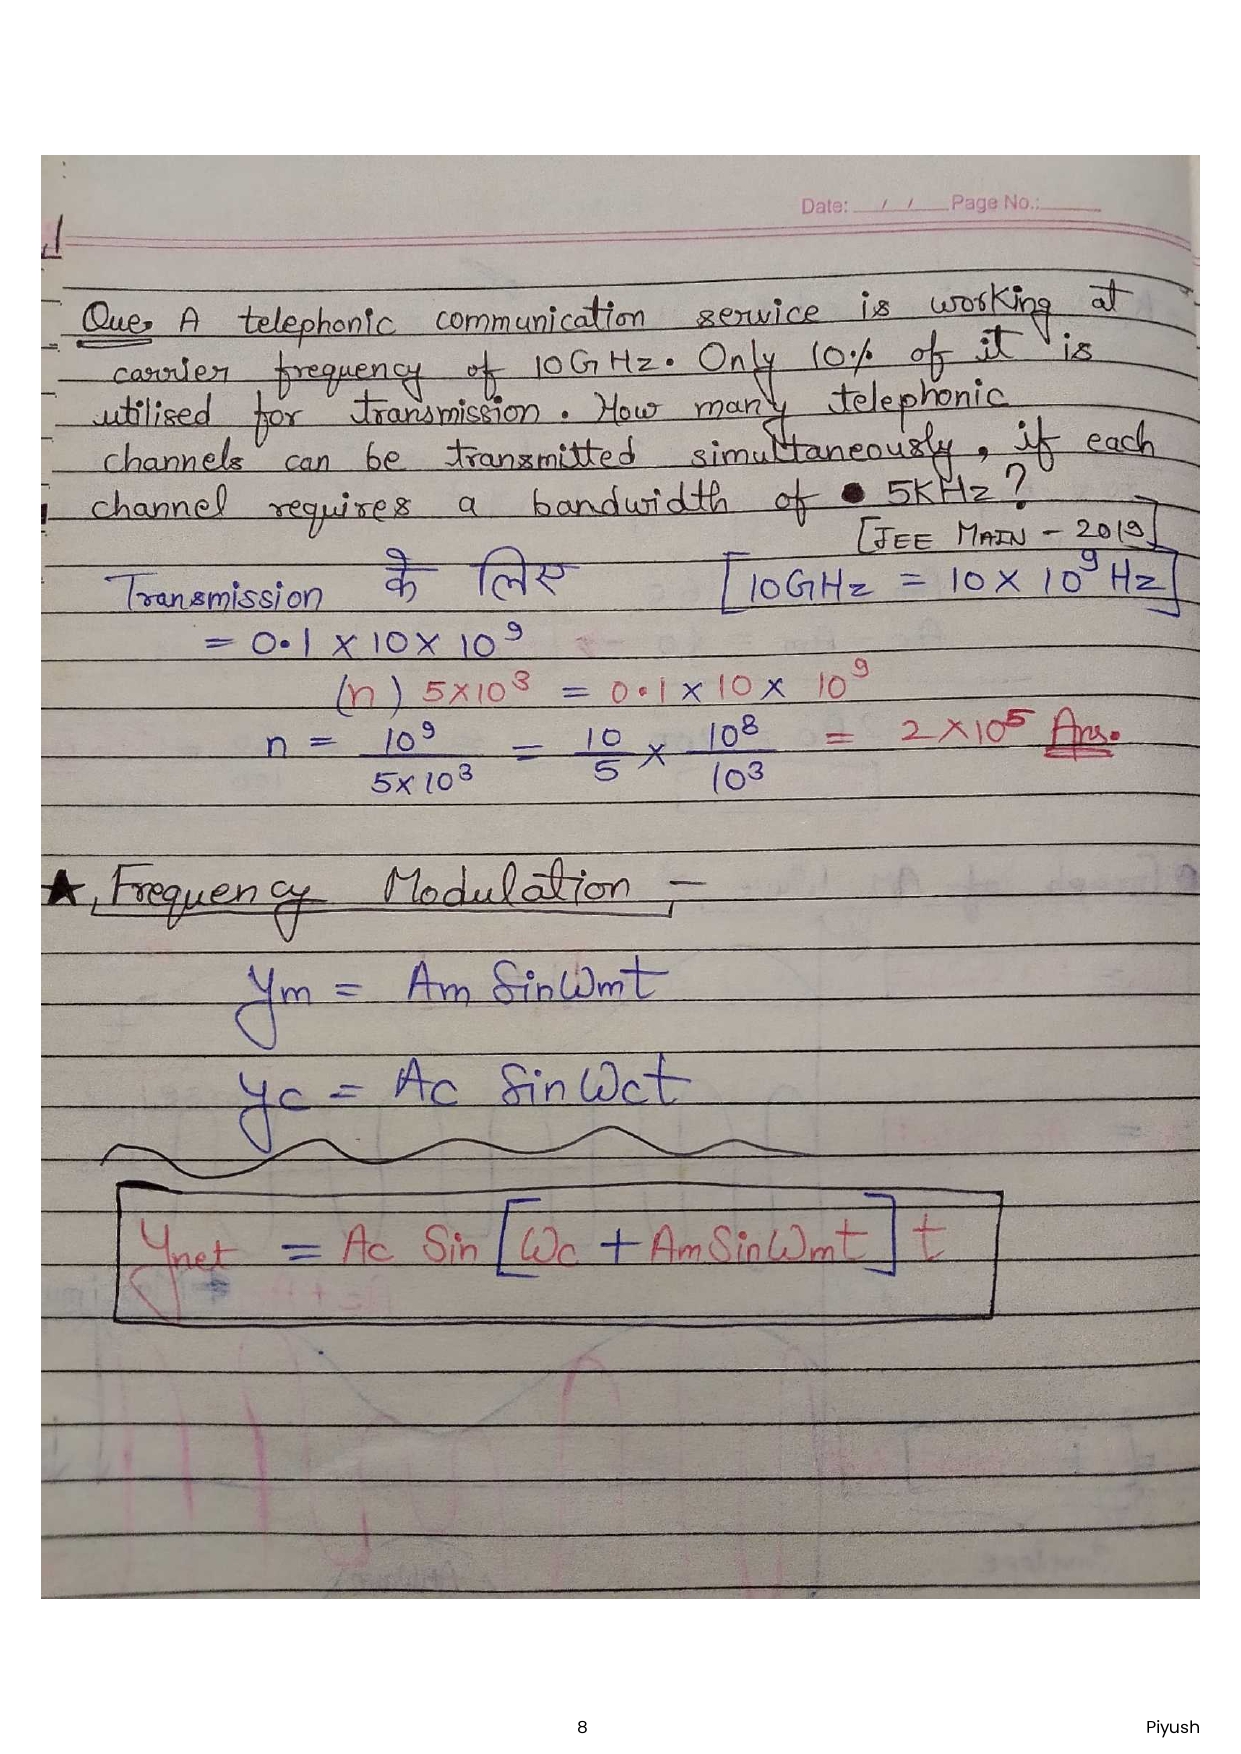 Date: / / Page No.:
Que. A telephonic communication service is working at
carrier frequency of 10GHz. Only 10% of it is
utilised for transmission. How many telephonic
channels can be transmitted simultaneously, if each
channel requires a bandwidth of 5KHz?
[JEE MAIN - 2019]
Transmission के लिए [10GHz = 10 × 10⁹ Hz]
= 0.1 × 10 × 10⁹
(n) 5×10³ = 0.1 × 10 × 10⁹
n = 10⁹/5×10³ = 10/5 × 10⁸/10³ = 2×10⁵ Ans.
★ Frequency Modulation -
ym = Am Sinωmt
yc = Ac Sinωct
ynet = Ac Sin [ωc + Am Sinωmt] t
8 Piyush